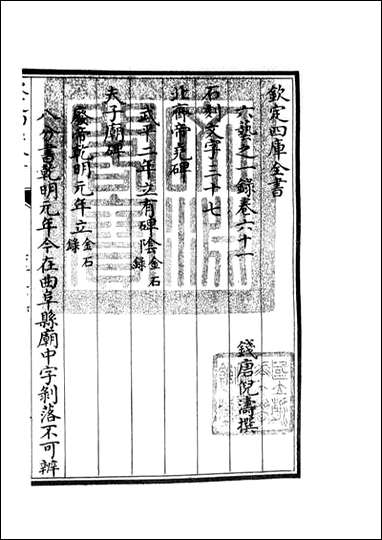 欽定四庫全書
六藝之一錄卷六十一
錢唐倪濤撰
石刻文字三十七
北齊帝堯碑
武平二年立有碑陰金石錄
夫子廟碑
廢帝乾明元年立金石錄
八分書乾明元年今在曲阜縣廟中字剝落不可辨